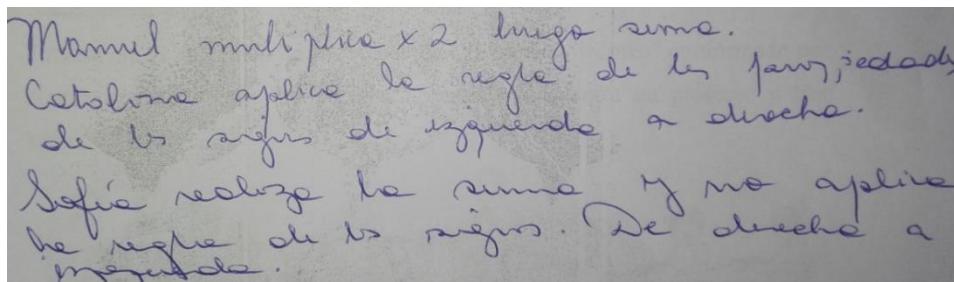 Manuel multiplica x 2 luego suma.
Catalina aplica la regla de las propiedades
de los signos de izquierda a derecha.
Sofía realiza la suma y no aplica
la regla de los signos. De derecha a
izquierda.